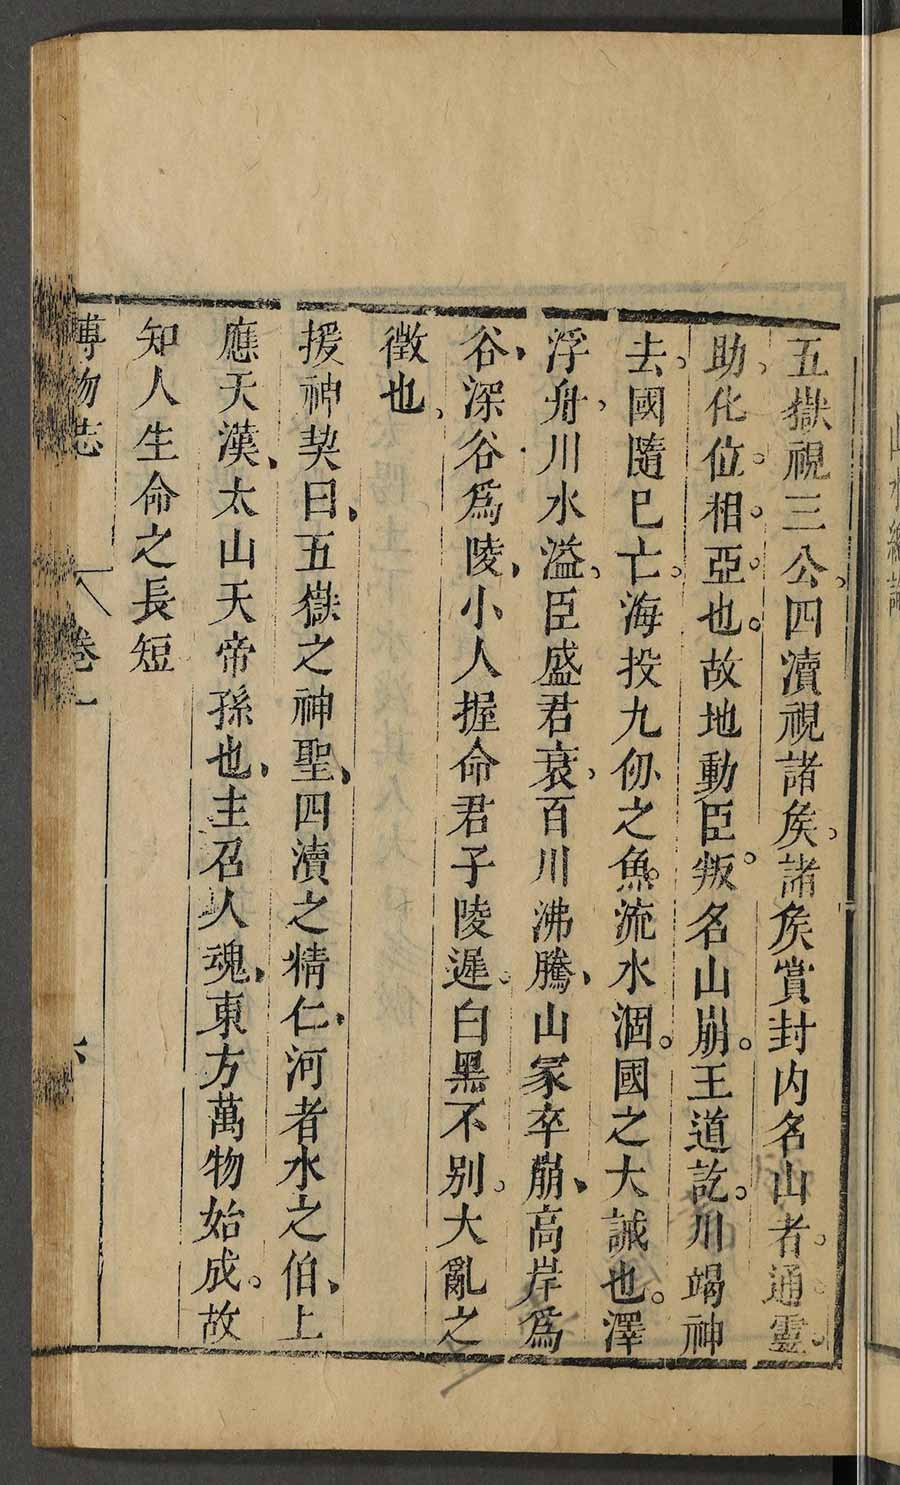 五嶽視三公、四瀆視諸矦。諸矦賞封内名山者。通靈
助化位相亞也。故地動臣叛。名山崩。王道訖。川竭神
去。國隨已亡。海投九仞之魚。流水涸。國之大誡也。澤
浮舟、川水溢、臣盛君衰、百川沸騰、山冢卒崩、高岸爲
谷、深谷爲陵、小人握命君子陵遲。白黑不别。大亂之
徵也、
援神契曰、五嶽之神聖、四瀆之精仁、河者水之伯、上
應天漢、太山天帝孫也、主召人魂、東方萬物始成。故
知人生命之長短
博物志 卷一